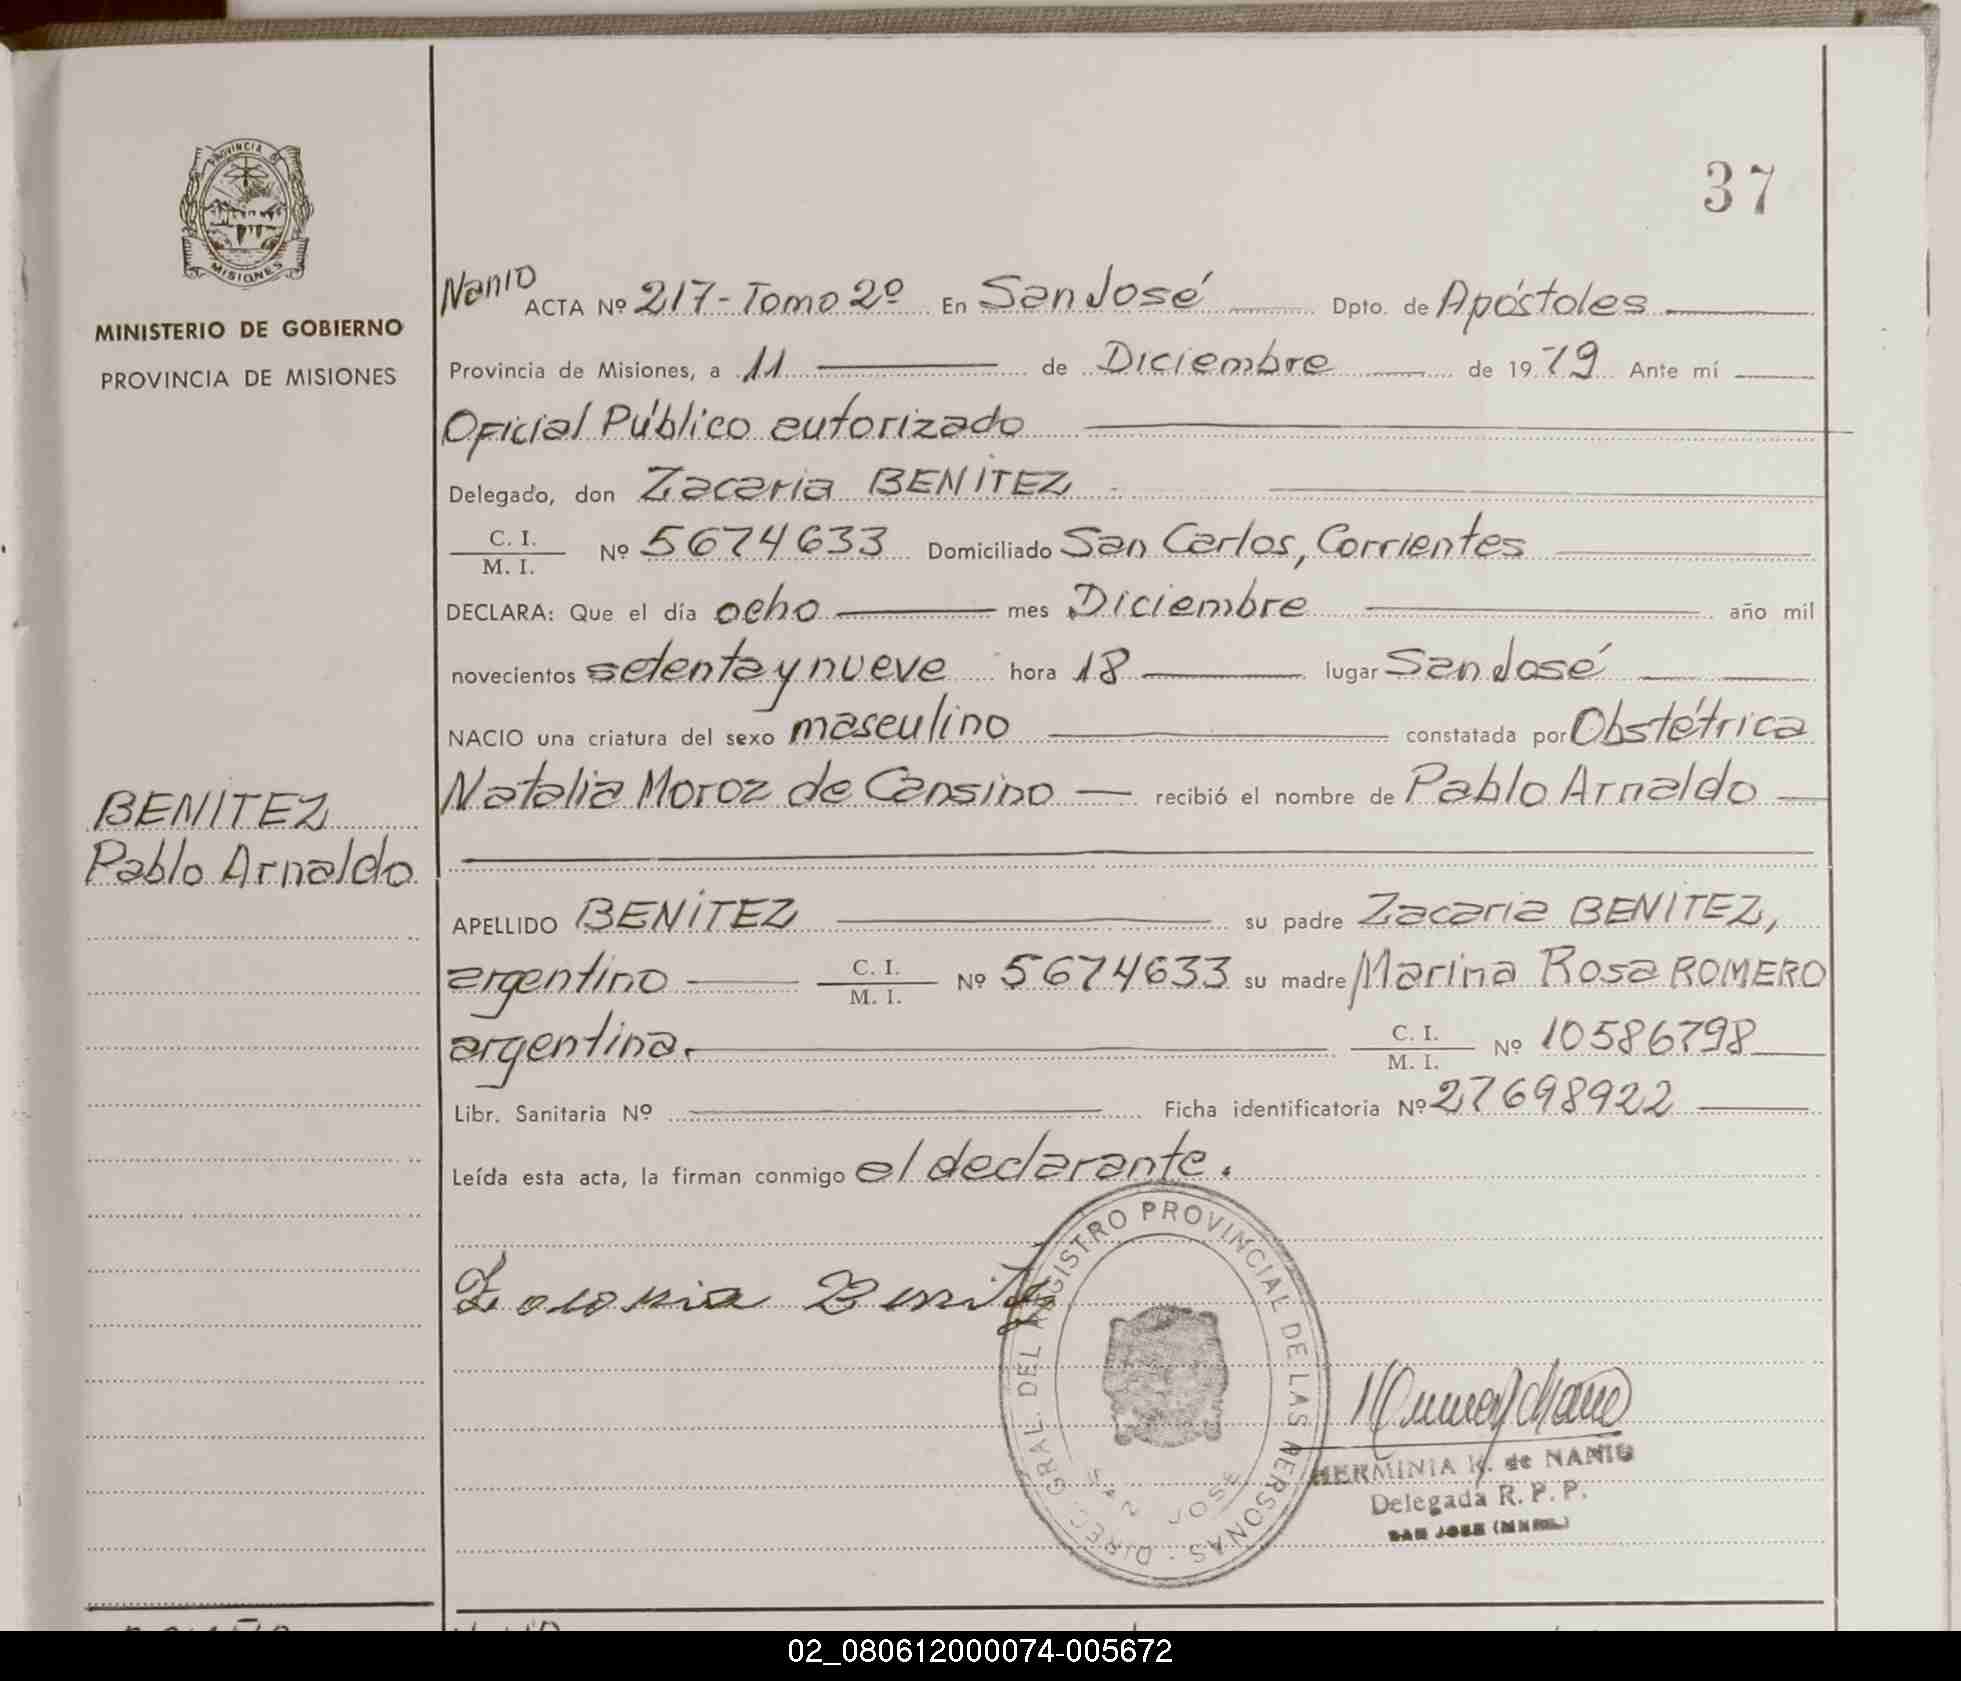 37
PROVINCIA DE
MISIONES
MINISTERIO DE GOBIERNO
PROVINCIA DE MISIONES
Nanio ACTA Nº 217 - Tomo 2º En San José Dpto. de Apóstoles
Provincia de Misiones, a 11 de Diciembre de 1979 Ante mí
Oficial Público autorizado
Delegado, don Zacaria BENITEZ
C. I.
M. I. Nº 5674633 Domiciliado San Carlos, Corrientes
DECLARA: Que el día ocho mes Diciembre año mil
novecientos setenta y nueve hora 18 lugar San José
NACIO una criatura del sexo masculino constatada por Obstétrica
Natalia Moroz de Cansino recibió el nombre de Pablo Arnaldo
BENITEZ
Pablo Arnaldo
APELLIDO BENITEZ su padre Zacaria BENITEZ,
argentino C. I. M. I. Nº 5674633 su madre Marina Rosa ROMERO
argentina. C. I. M. I. Nº 10586798
Libr. Sanitaria Nº Ficha identificatoria Nº 27698922
Leída esta acta, la firman conmigo el declarante.
Zacaria Benitez
DIREC. GRAL. DEL REGISTRO PROVINCIAL DE LAS PERSONAS
SAN JOSE
HERMINIA K. de NANIO
Delegada R. P. P.
SAN JOSE (MNES.)
02_080612000074-005672